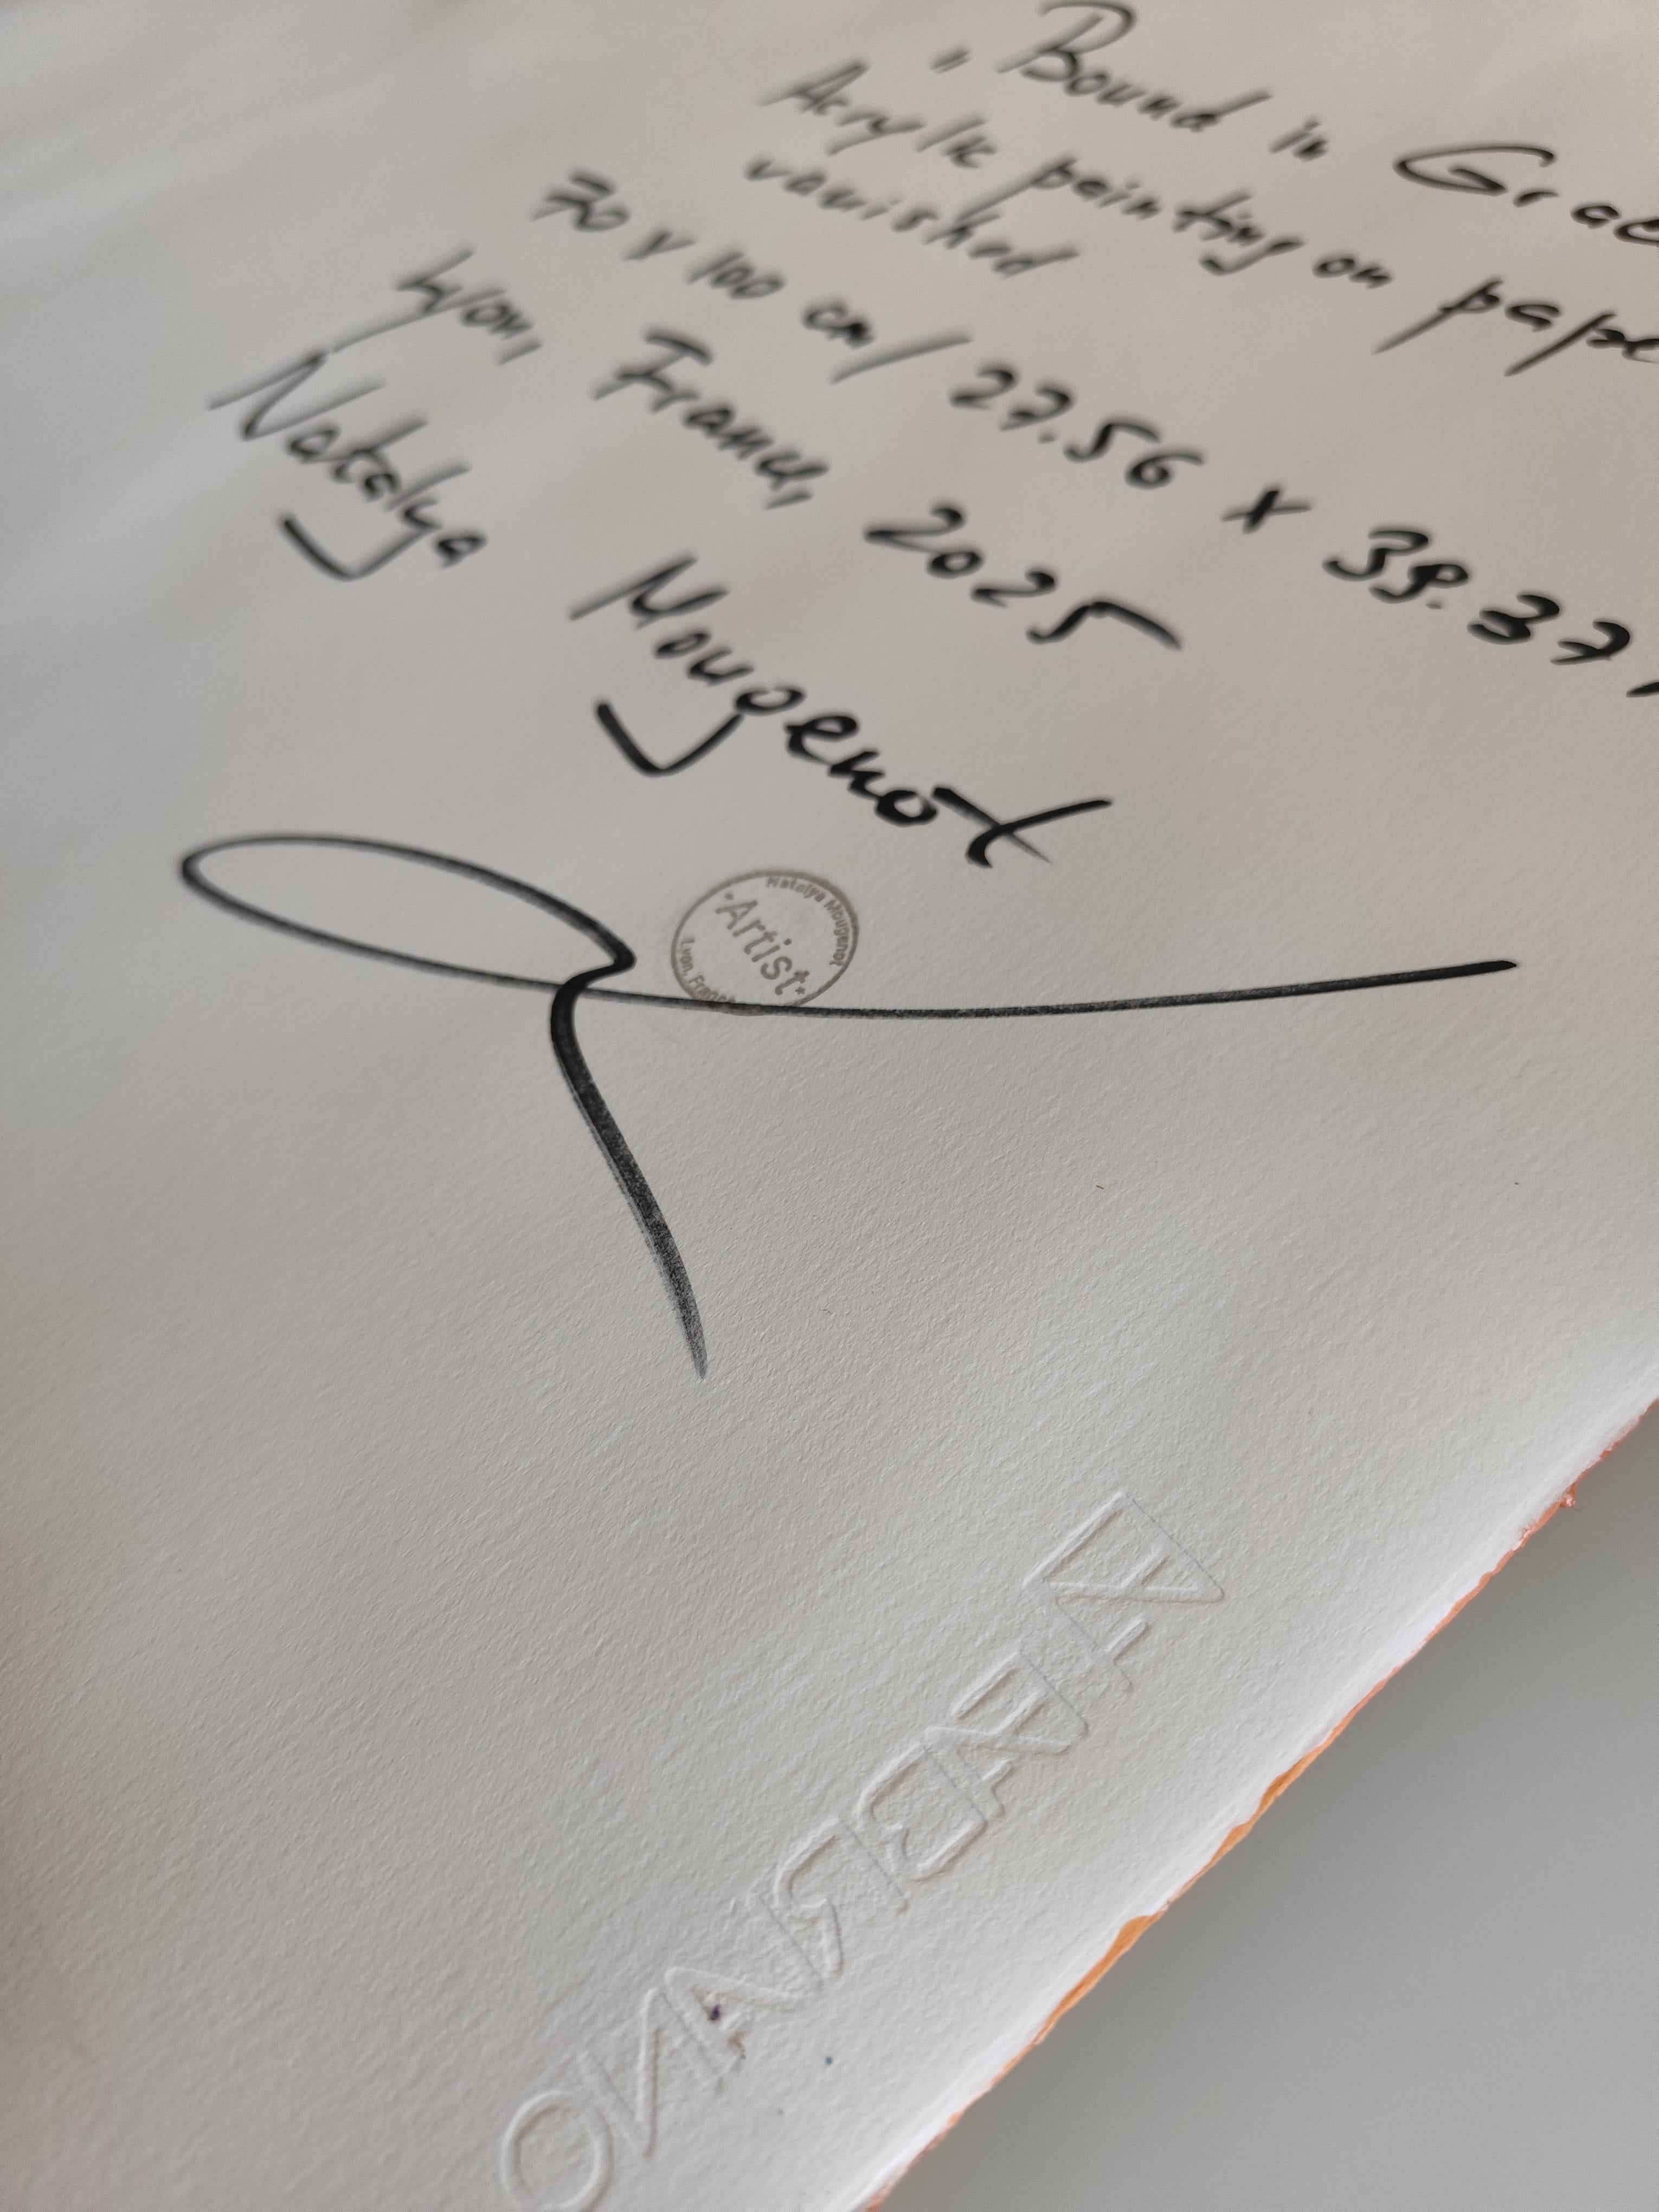 „Bound in Grac
Acrylic painting on pape
vanished
70 x 100 cm / 27.56 x 39.37
Lyon, France, 2025
Natalya Mougenot
Natalya Mougenot
•Artist•
Lyon, France
FABRIANO